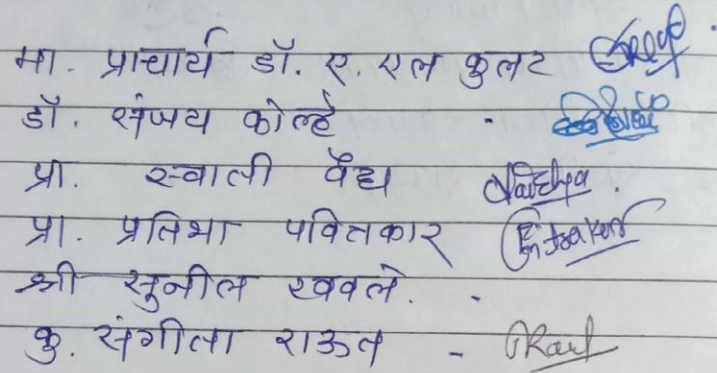 मा. प्राचार्य डॉ. ए. एल कुलट
डॉ. संजय कोल्हे -
प्रा. स्वाली वैद्य Vaidya.
प्रा. प्रतिभा पवितकार
श्री सुनील खवले. -
कु. संगीता राऊत - Raut